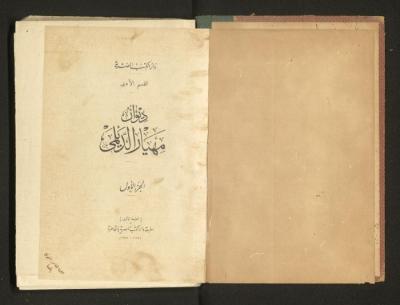 دار الكتب المصرية
القسم الأدبى
ديوان
مهيار الديلمى
الجزء الأول
[ الطبعة الأولى ]
مطبعة دار الكتب المصرية بالقاهرة